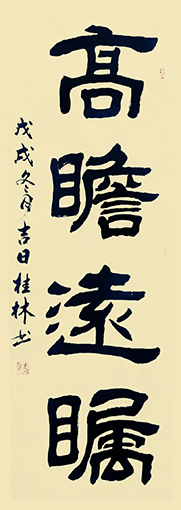 高瞻遠瞩
戊戌冬月吉日桂林书